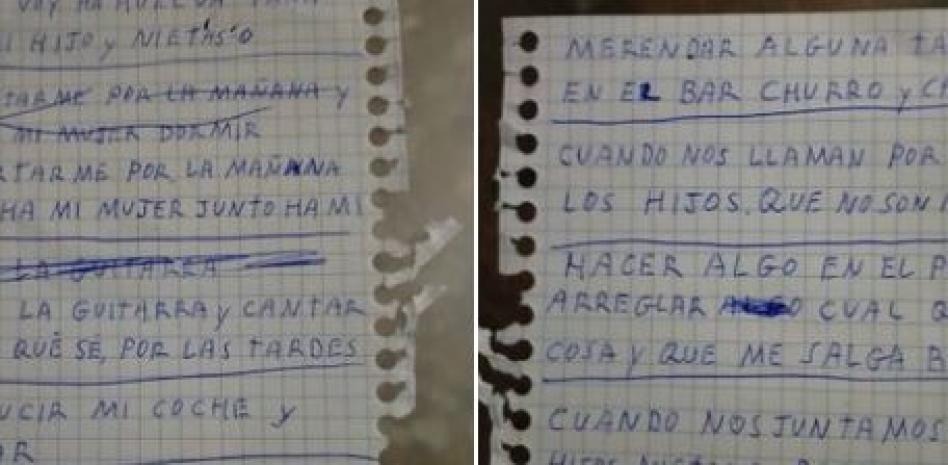 VOY HA HUELVA PARA
HIJO y NIETAS'O
POR LA MAÑANA y
MI MUJER DORMIR
POR LA MAÑANA
HA MI MUJER JUNTO HA MI
LA GUITARRA
LA GUITARRA y CANTAR
QUE SÉ, POR LAS TARDES
MI COCHE y
MERENDAR ALGUNA TA
EN EL BAR CHURRO y C
CUANDO NOS LLAMAN POR
LOS HIJOS. QUE NO SON
HACER ALGO EN EL P
ARREGLAR CUAL Q
COSA y QUE ME SALGA B
CUANDO NOS JUNTAMOS